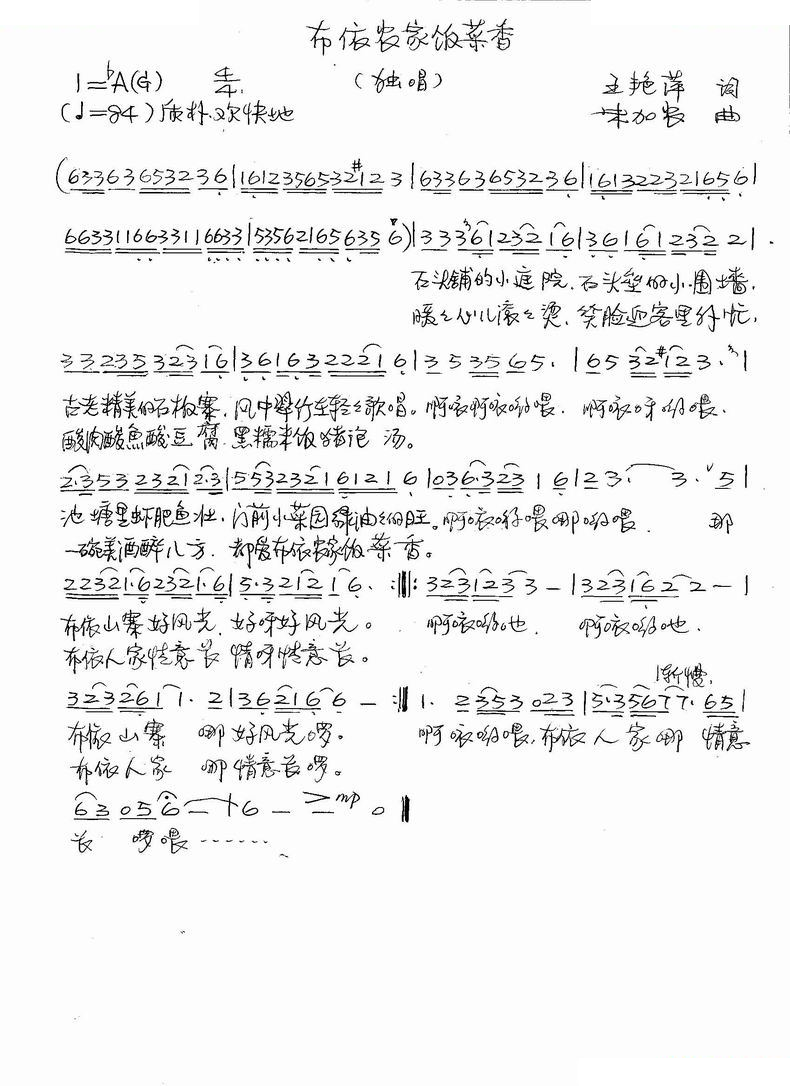 布依农家饭菜香
1=♭A(G) 4/4 （独唱） 王艳萍 词
(♩=84) 质朴.欢快地 宋加农 曲
(633636653236|1612356532123|6336366532 36|1613223216 56|
663311663311 6633|53562165635 6)|3336123216|3616123 22|
石头铺的小庭院，石头垒的小围墙，
暖暖心儿滚滚烫，笑脸迎客里外忙，
3323 5323 16|3616322216|35 35 65.|65 32#12 3.|
古老精美的石板寨，风中翠竹在轻轻歌唱。啊哝啊哝哟喂，啊哝呀哟喂，
酸肉酸鱼酸豆腐，黑糯米饭猪泡汤。
2.353 2321 2.3|553232161216|036.32316|23. 3. 5|
池塘里虾肥鱼壮，门前小菜园绿油油的旺。啊哝哟喂哪哟喂， 那
一碗美酒醉八方，都爱布依农家饭菜香。
22321.62321.6|5.321216. :‖: 3231233 —|3231622 —|
布依山寨好风光，好呀好风光。 啊哝哟也， 啊哝哟也，
布依人家情意长，情呀情意长。
渐慢.
3232611. 2|362166 — :‖ 1. 2353 023|5.35677. 65|
布依山寨 哪好风光啰。 啊哝哟喂，布依人家哪 情意
布依人家 哪情意长啰。
63 056 — | 6 — > mp 0 ‖
长 啰喂……